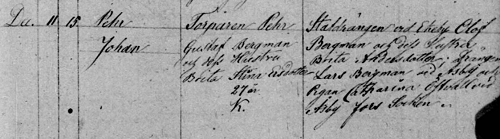 Dec. 11. 15. Pehr Johan
Torparen Pehr
Gustaf Bergman
och dess Hustru
Brita Stina Ersdotter
27 år
K.
Stalldrängen vid Ekeby Olof
Bergman och dess Hustru
Brita Andersdotter, Drängen
Lars Bergman vid Åsby och
Pigan Catharina
Åsby fors Socken.